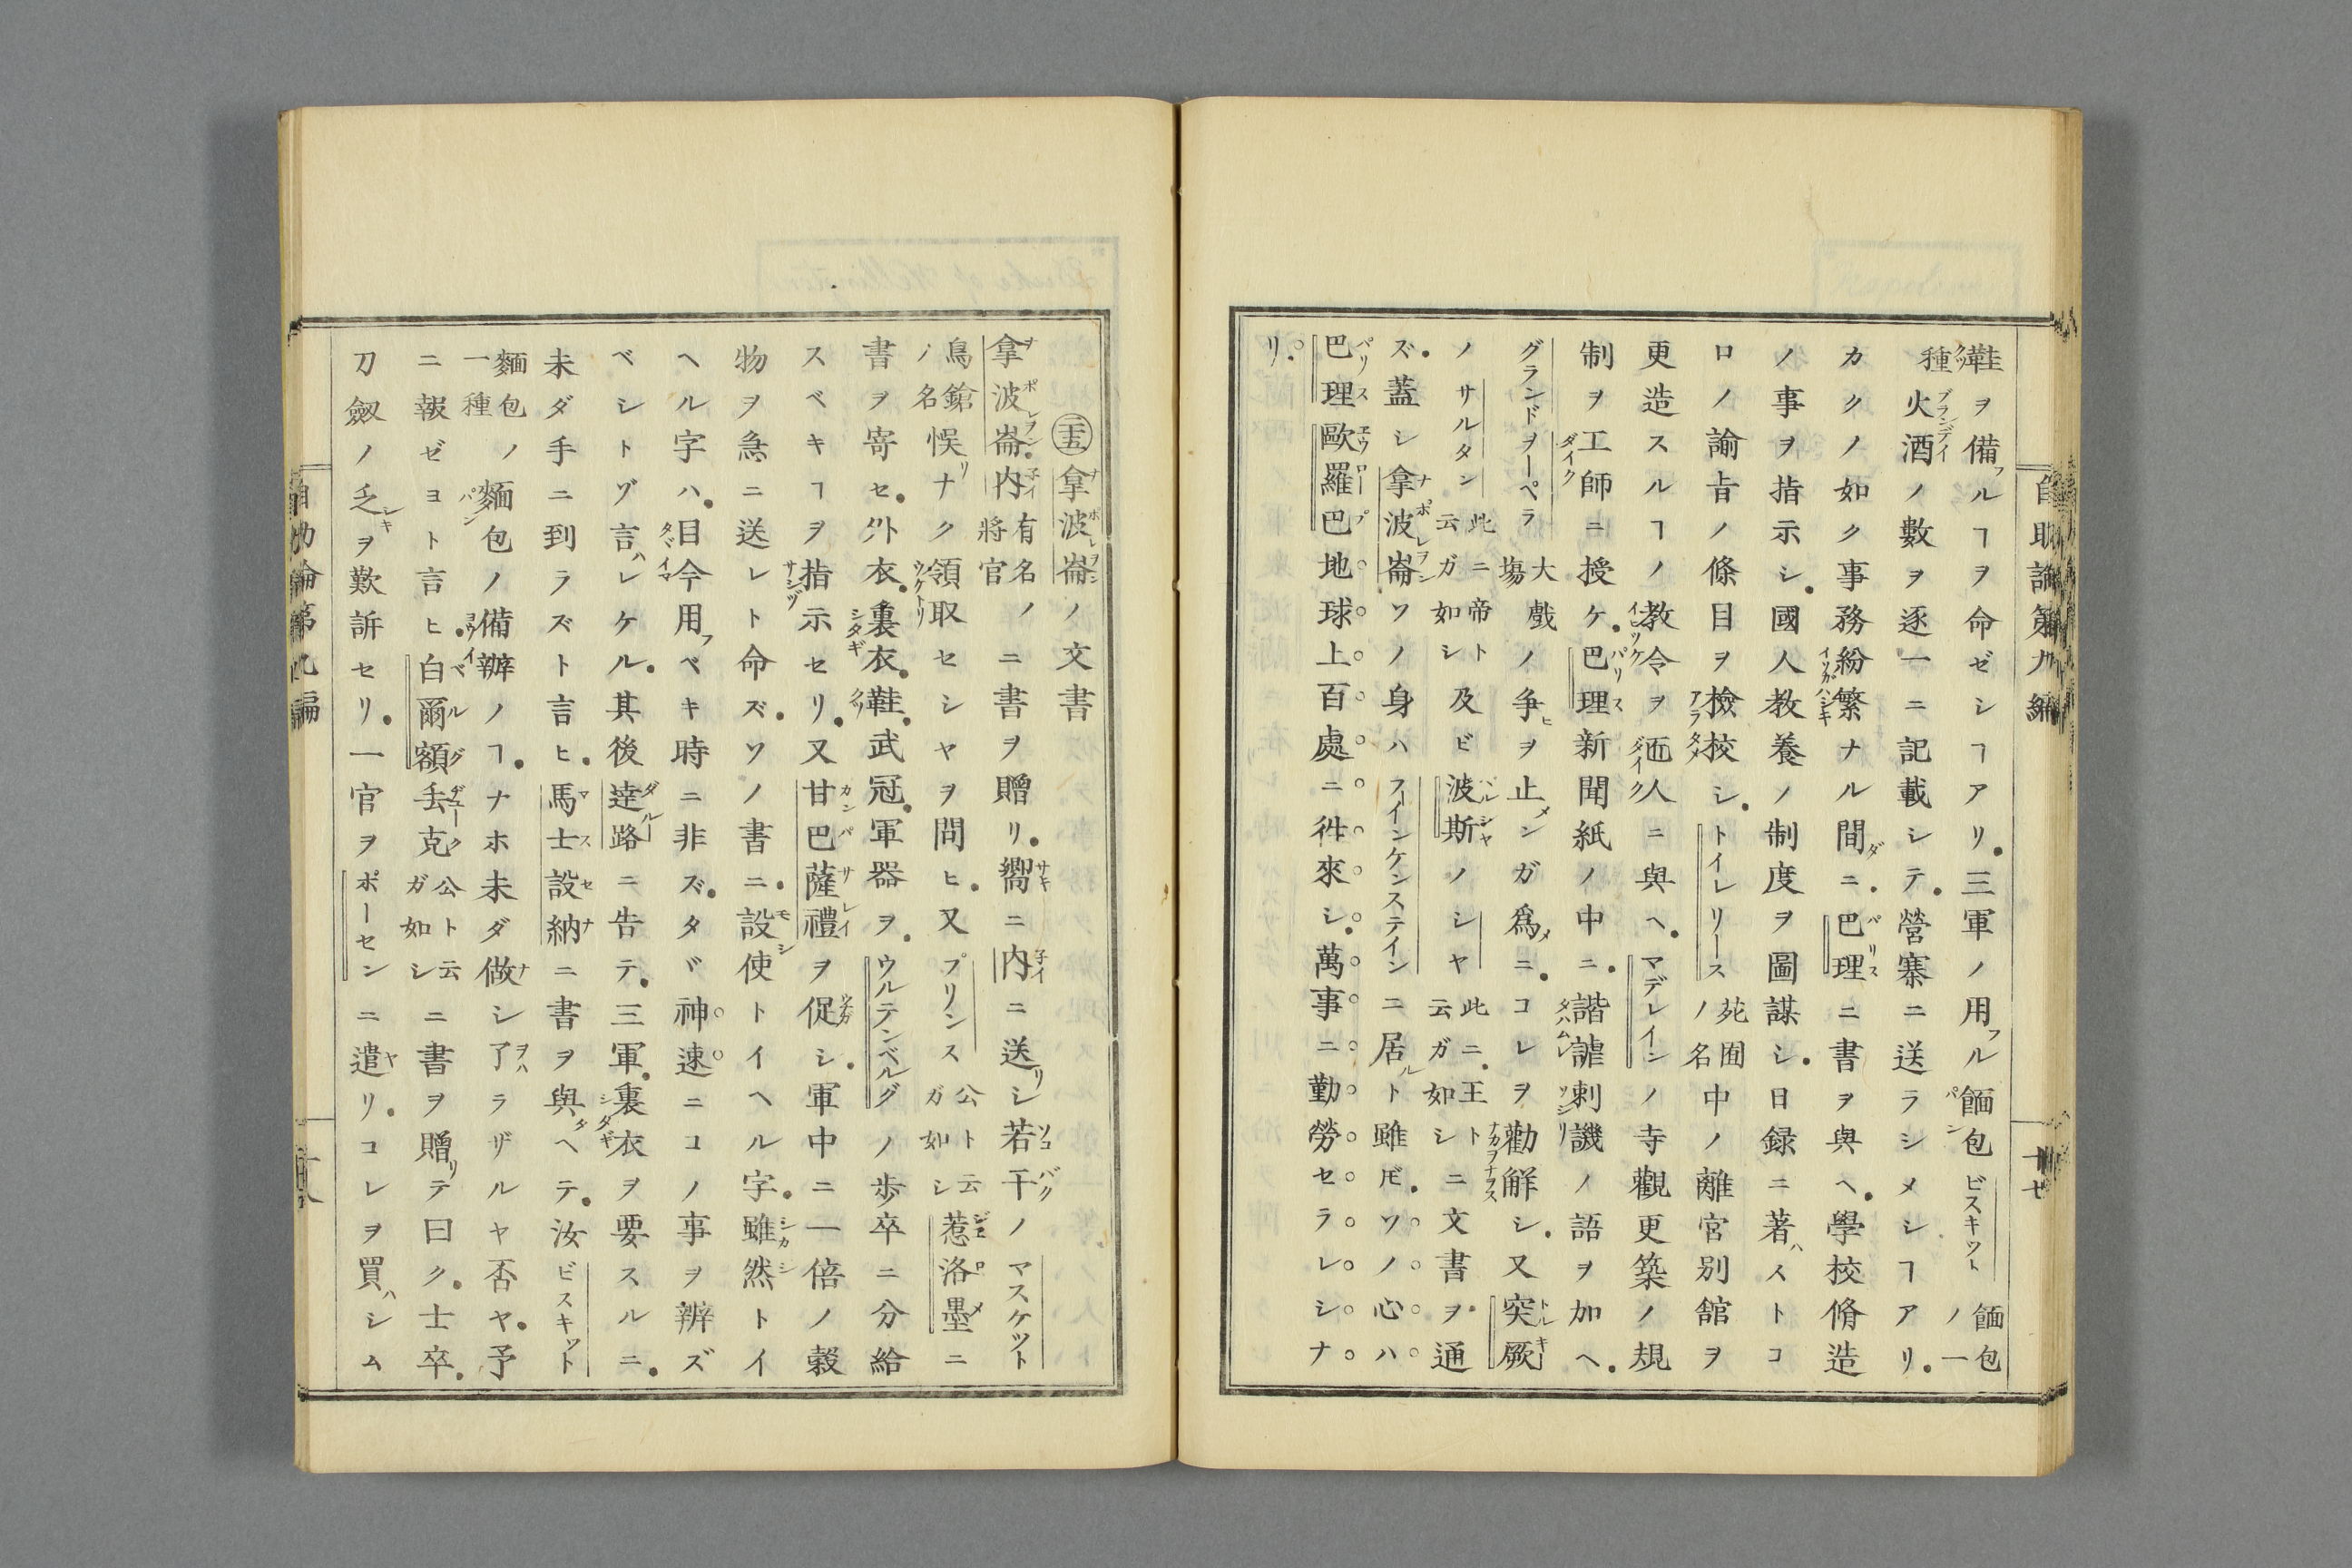 自助論第九編
鞋ヲ備フルヿヲ命ゼシヿアリ。三軍ノ用フル麵包ビスキット麵包ノ一
種火酒ノ數ヲ逐一ニ記載シテ。營寨ニ送ラシメシヿアリ。
カクノ如ク事務紛繁ナル間ダニ。巴理ニ書ヲ與ヘ。學校脩造
ノ事ヲ指示シ。國人教養ノ制度ヲ圖謀シ。日録ニ著ハストコ
ロノ諭旨ノ條目ヲ檢挍シ。トイレリース苑囿ノ名中ノ離宮別舘ヲ
更造スルヿノ教令ヲ匠人ニ與ヘ。マデレインノ寺觀更築ノ規
制ヲ工師ニ授ケ。巴理新聞紙ノ中ニ。諧謔刺譏ノ語ヲ加ヘ。
グランドヲーペラ大戲塲ノ爭ヒヲ止メンガ爲メニ。コレヲ勸解シ。又突厥
ノサルタン此ニ帝ト云ガ如シ及ビ波斯ノシヤ此ニ。王ト云ガ如シニ文書ヲ通
ズ。蓋シ拿波崙ソノ身ハフーインケンステインニ居ルト雖ドモ。ソノ心ハ
巴理歐羅巴地球上百處ニ徃來シ。萬事ニ勤勞セラレシナ
リ。
十七
㊂五拿波崙ノ文書
拿波崙。内有名ノ將官ニ書ヲ贈リ。嚮ニ内ニ送リシ若干ノマスケット
鳥鎗ノ名悞リナク領取セシヤヲ問ヒ。又プリンス公ト云ガ如シ惹洛墨ニ
書ヲ寄セ。外衣。裏衣。鞋。武冠。軍器ヲ。ウルテンベルグノ歩卒ニ分給
スベキヿヲ指示セリ。又甘巴薩禮ヲ促シ。軍中ニ一倍ノ穀
物ヲ急ニ送レト命ズ。ソノ書ニ。設使トイヘル字。雖然トイ
ヘル字ハ。目今用フベキ時ニ非ズ。タヾ神速ニコノ事ヲ辨ズ
ベシトゾ言ハレケル。其後達路ニ告テ。三軍。裏衣ヲ要スルニ。
未ダ手ニ到ラズト言ヒ。馬士設納ニ書ヲ與ヘテ。汝ビスキット
麵包ノ一種ノ麵包ノ備辦ノヿ。ナホ未ダ做シ了ラザルヤ否ヤ。予
ニ報ゼヨト言ヒ。白爾額丟克公ト云ガ如シニ書ヲ贈リテ曰ク。士卒。
刀劔ノ乏シキヲ歎訴セリ。一官ヲポーセンニ遣リ。コレヲ買ハシム
自助論第九編